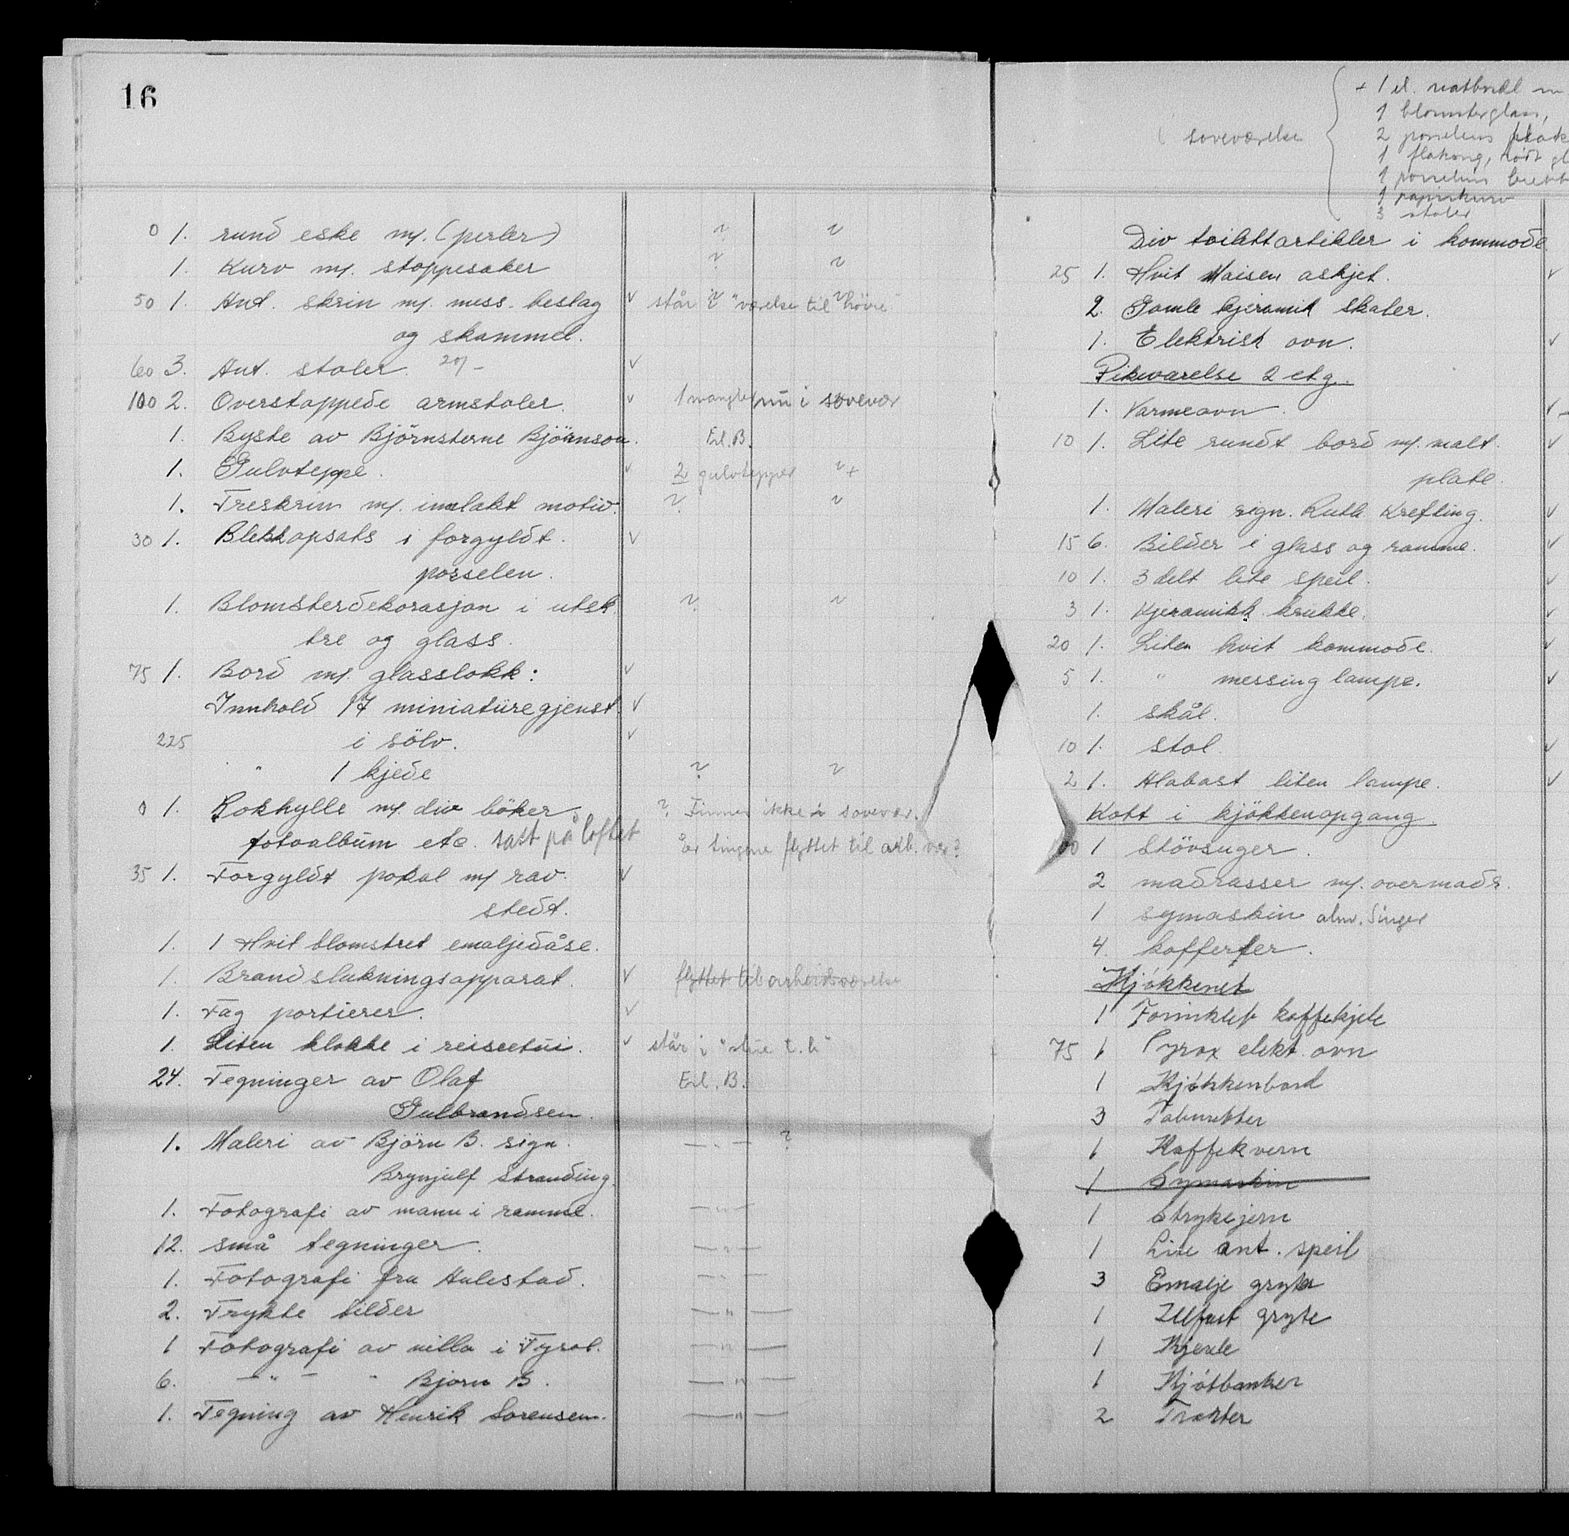 16
0 1. rund eske m/. (perler) ? ?
1. Kurv m/. stoppesaker ? ?
50 1. Ant. skrin m/. mess. beslag v står i "værelse til höire"
og skammel.
60 3. Ant. stoler. 20/- v
100 2. Overstoppede armstoler. v 1 mangler nu i sovevær
1. Byste av Björnstjerne Björnson. Eil. B.
1. Gulvteppe. v 2 gulvtepper
1. Treskrin m/. innlakt motiv. ? ?
30 1. Blekkopsats i forgyldt. v
porselen.
1. Blomsterdekorasjon i utsk. ? ?
tre og glass.
75 1. Bord m/. glasslokk: v
Innhold 17 miniatüregjenst. v
225 i sölv. v
" 1 kjede ? ?
0 1. Bokhylle m/. div böker. ? Finnes ikke i sovevær.
fotoalbum etc. satt på loftet Är tingene flyttet til arb. vær?
35 1. Forgyldt pokal m/ rav v
stedt.
1. 1 Hvit blomstret emaljedåse.
1. Brandslukningsapparat. v flyttet til arbeidsværelse
1. Fag portierer. v
1. Liten klokke i reiseetui. v står i "stue t. h"
24. Tegninger av Olaf Eil. B.
Gulbrandsen.
1. Maleri av Björn B. sign. — " — ?
Brynjulf Stranding.
1. Fotografi av mann i ramme. — " —
12. små tegninger. — " —
1. Fotografi fra Aulestad. — " —
2. Trykte bilder — " —
1 Fotografi av villa i Tyrol. — " —
6. — " — " Bjørn B. — " —
1. Tegning av Henrik Sørensen. — " —
soveværelse
+ 1 el. natbord
1 blomsterglass,
2 porselens
1 flakong, rödt
1 porselens
1 papirkurv
3 stoler
Div toilettartikler i kommode
25 1. Hvit Maisen askjet. v
2. Gamle kjeramik skaler.
1. Elektrisk ovn. v
Pikeværelse 2 etg.
1. Varmeovn. v
10 1. Lite rundt bord m/. malt. v
plate.
1. Maleri sign. Ruth Krefting. v
15 6. Bilder i glass og ramme. v
10 1. 3 delt lite speil. v
3 1. Kjeramikk krukke. v
20 1. Liten hvit kommode. v
5 1. " messing lampe. v
1. skål.
10 1. stol. v
2 1. Alabast liten lampe. v
Kott i kjökkenopgang.
1 Stövsuger.
2 madrasser m/. overmadr.
1 symaskin alm. Singer
4. kofferter.
Kjøkkenet
1 Forniklet kaffekjele
75 1 Pyrox elekt. ovn
1 Kjøkkenbord
3 Taburetter
1 Kaffekvern
1 Symaskin
1 Strykejern
1 Lite ant. speil
3 Emalje gryter
1 Ildfast gryte
1 Kjele
1 Kjøtbanker
2 Trakter